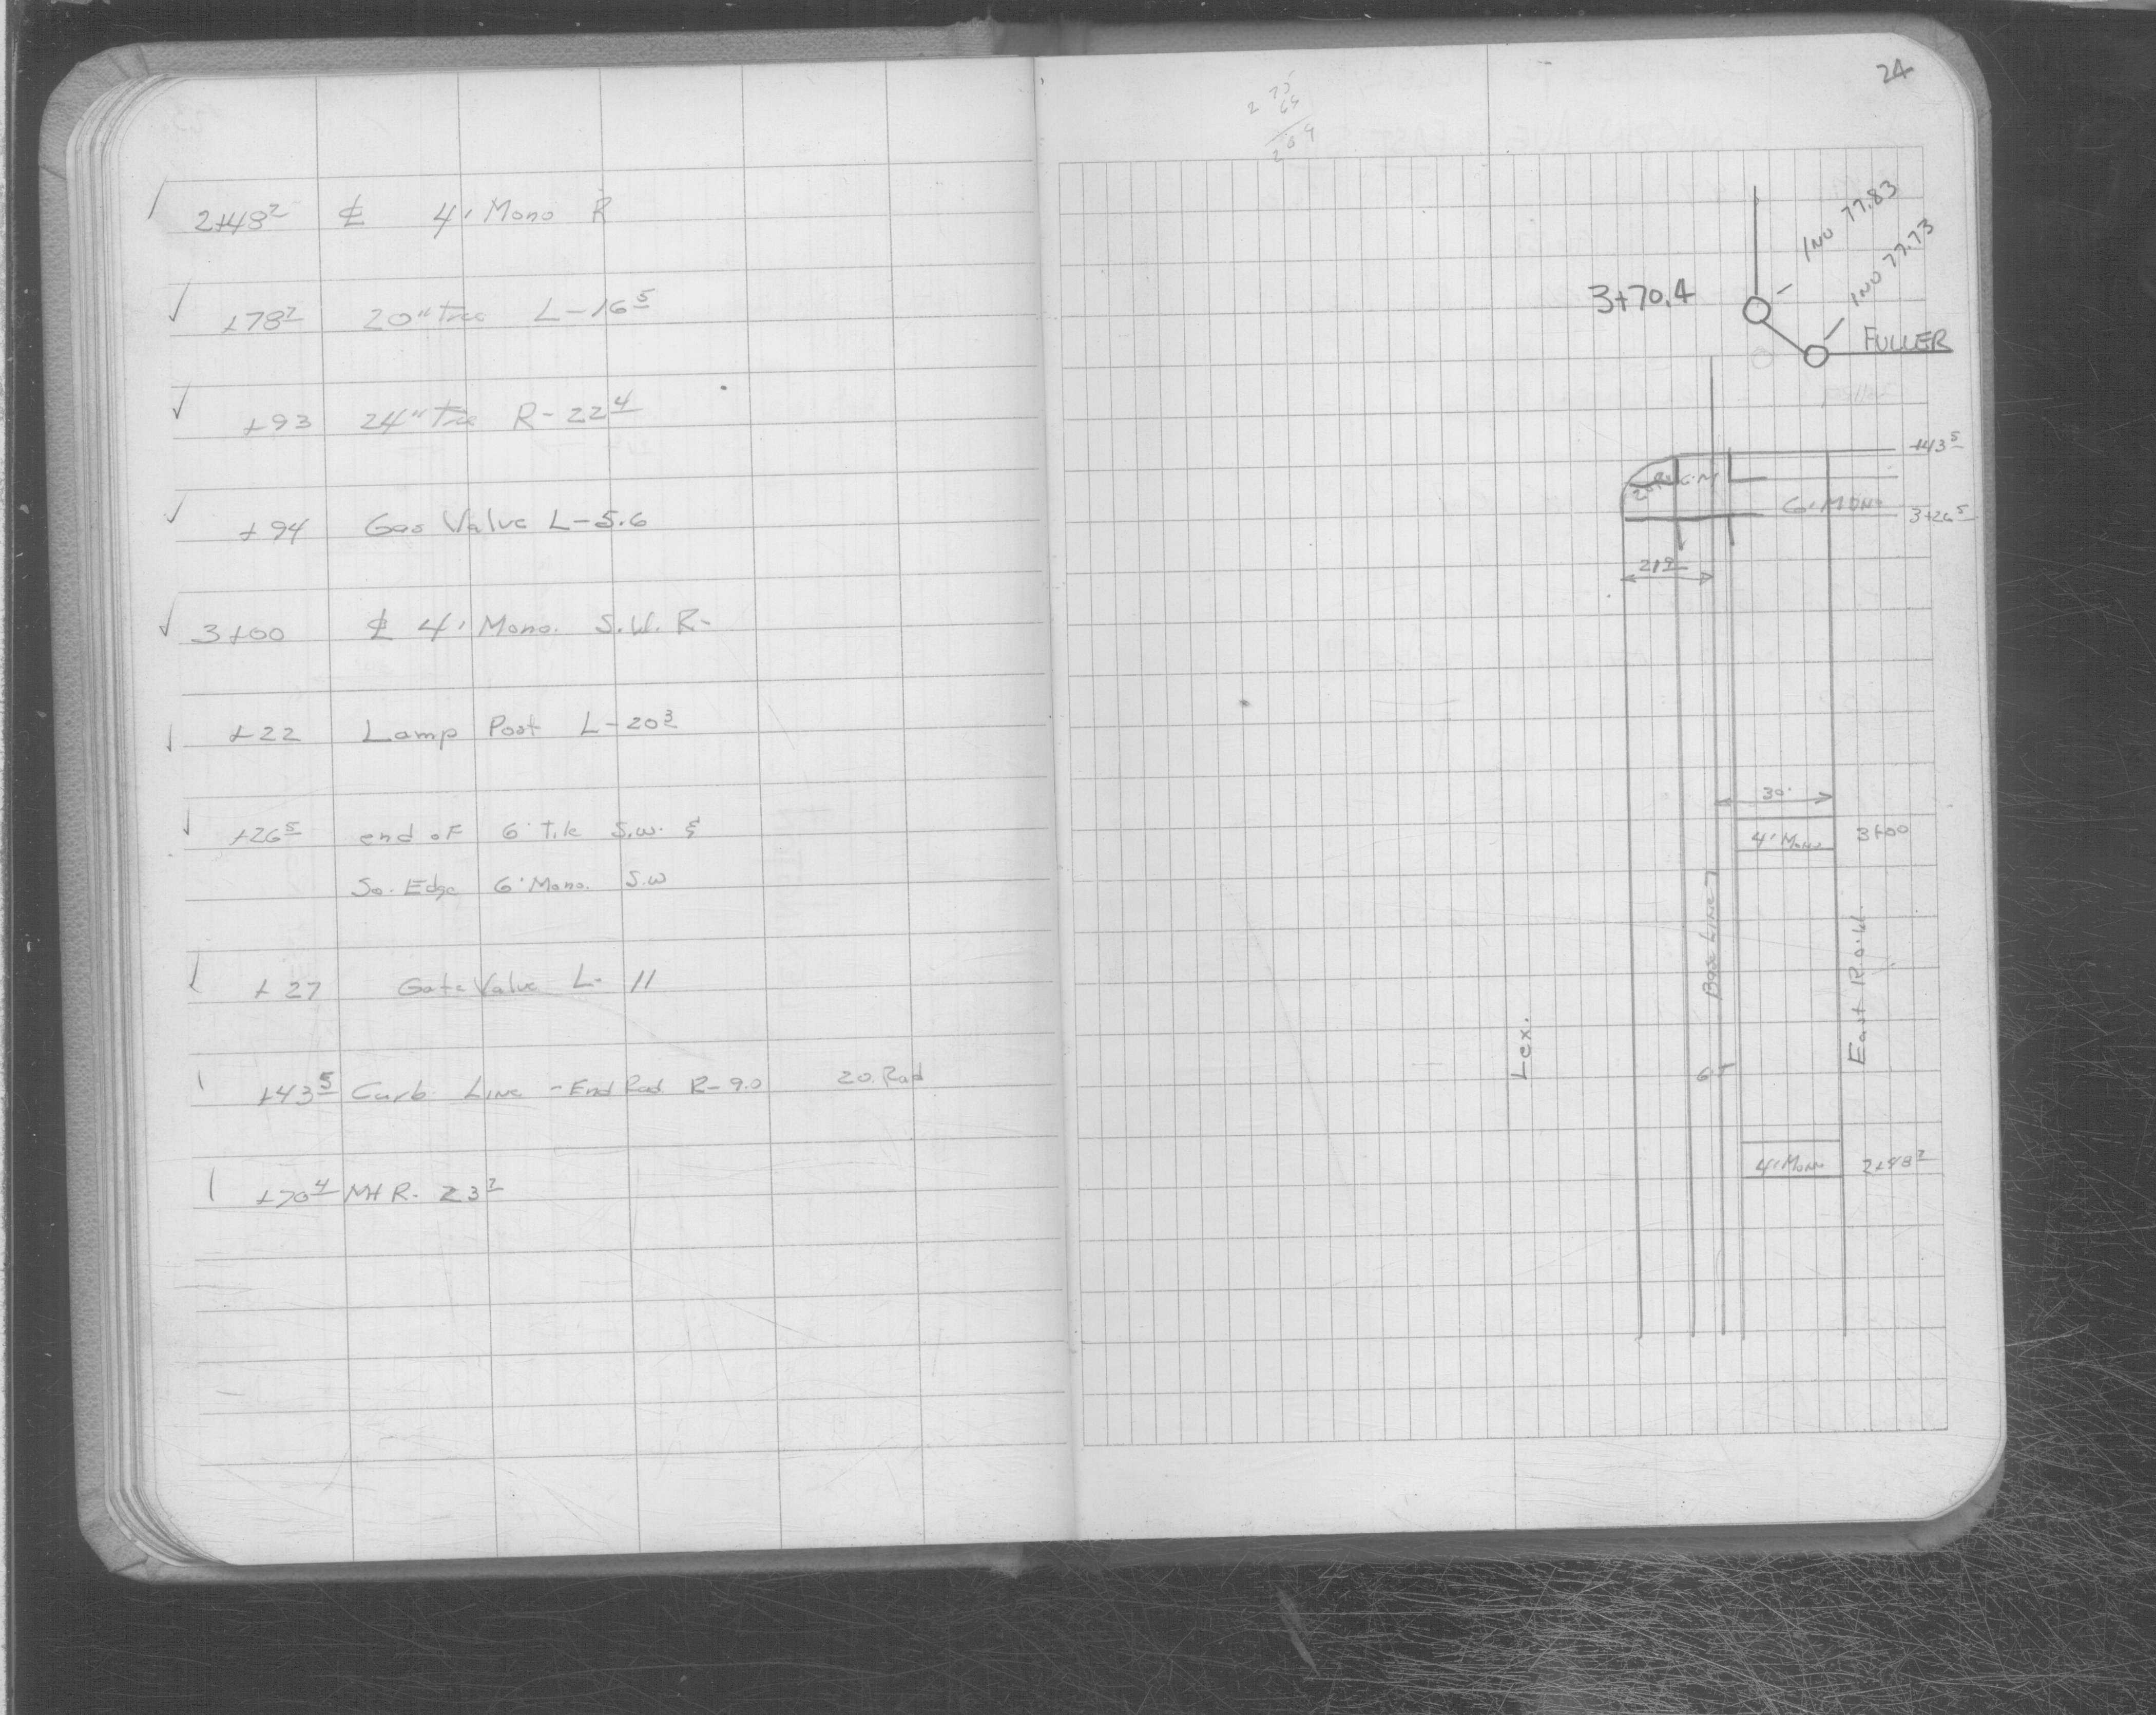 2+48² ℄ 4' Mono R
+78² 20" Tree L-16⁵
+93 24" Tree R-22⁴
+94 Gas Valve L-5.6
3+00 ℄ 4' Mono. S.W. R-
+22 Lamp Post L-20³
+26⁵ end of 6' Tile S.W. &
So. Edge 6' Mono. S.W
+27 Gate Valve L- 11
+43⁵ Curb Line - End Rad. R-9.0 20. Rad
+70⁴ MH R. 23²
24
2 75
64
209
INV 77.83
INV 77.73
3+70.4
FULLER
+43⁵
6' Mono
3+26⁵
21⁹
30'
4' Mono 3+00
Base Line
East R.O.W.
Lex.
6'T
4' Mono 2+48²